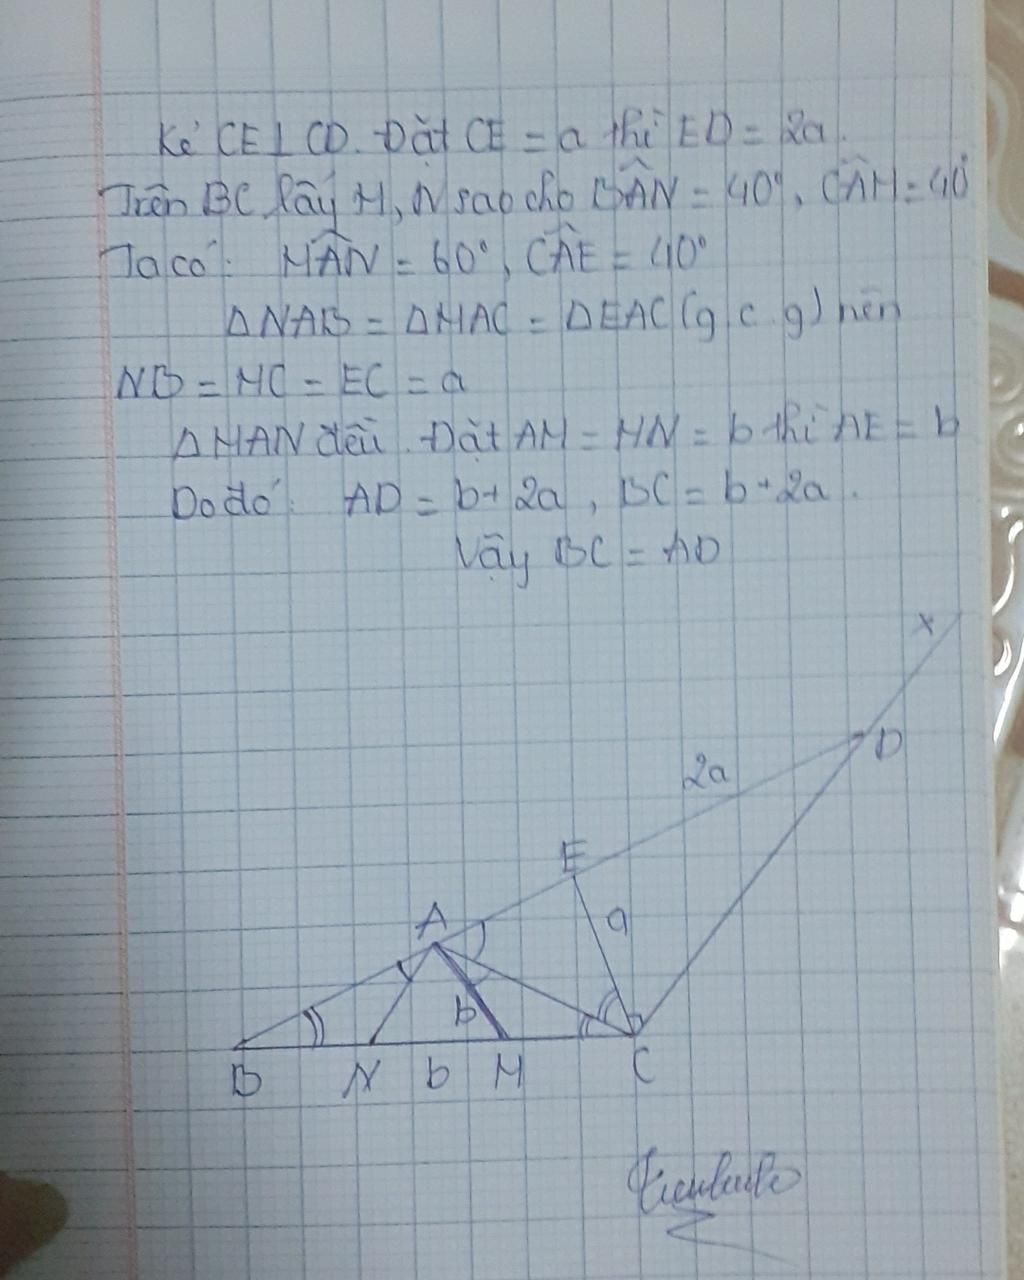 Kẻ CE ⊥ CD. Đặt CE = a thì ED = 2a.
Trên BC lấy M, N sao cho BÂN = 40°, CÂM = 40°
Ta có: MÂN = 60°, CÂE = 40°
ΔNAB = ΔMAC = ΔEAC (g.c.g) nên
NB = MC = EC = a
ΔMAN đều. Đặt AM = MN = b thì AE = b
Do đó: AD = b + 2a, BC = b + 2a.
Vậy BC = AD
x
D
2a
E
A
a
b
B N b M C